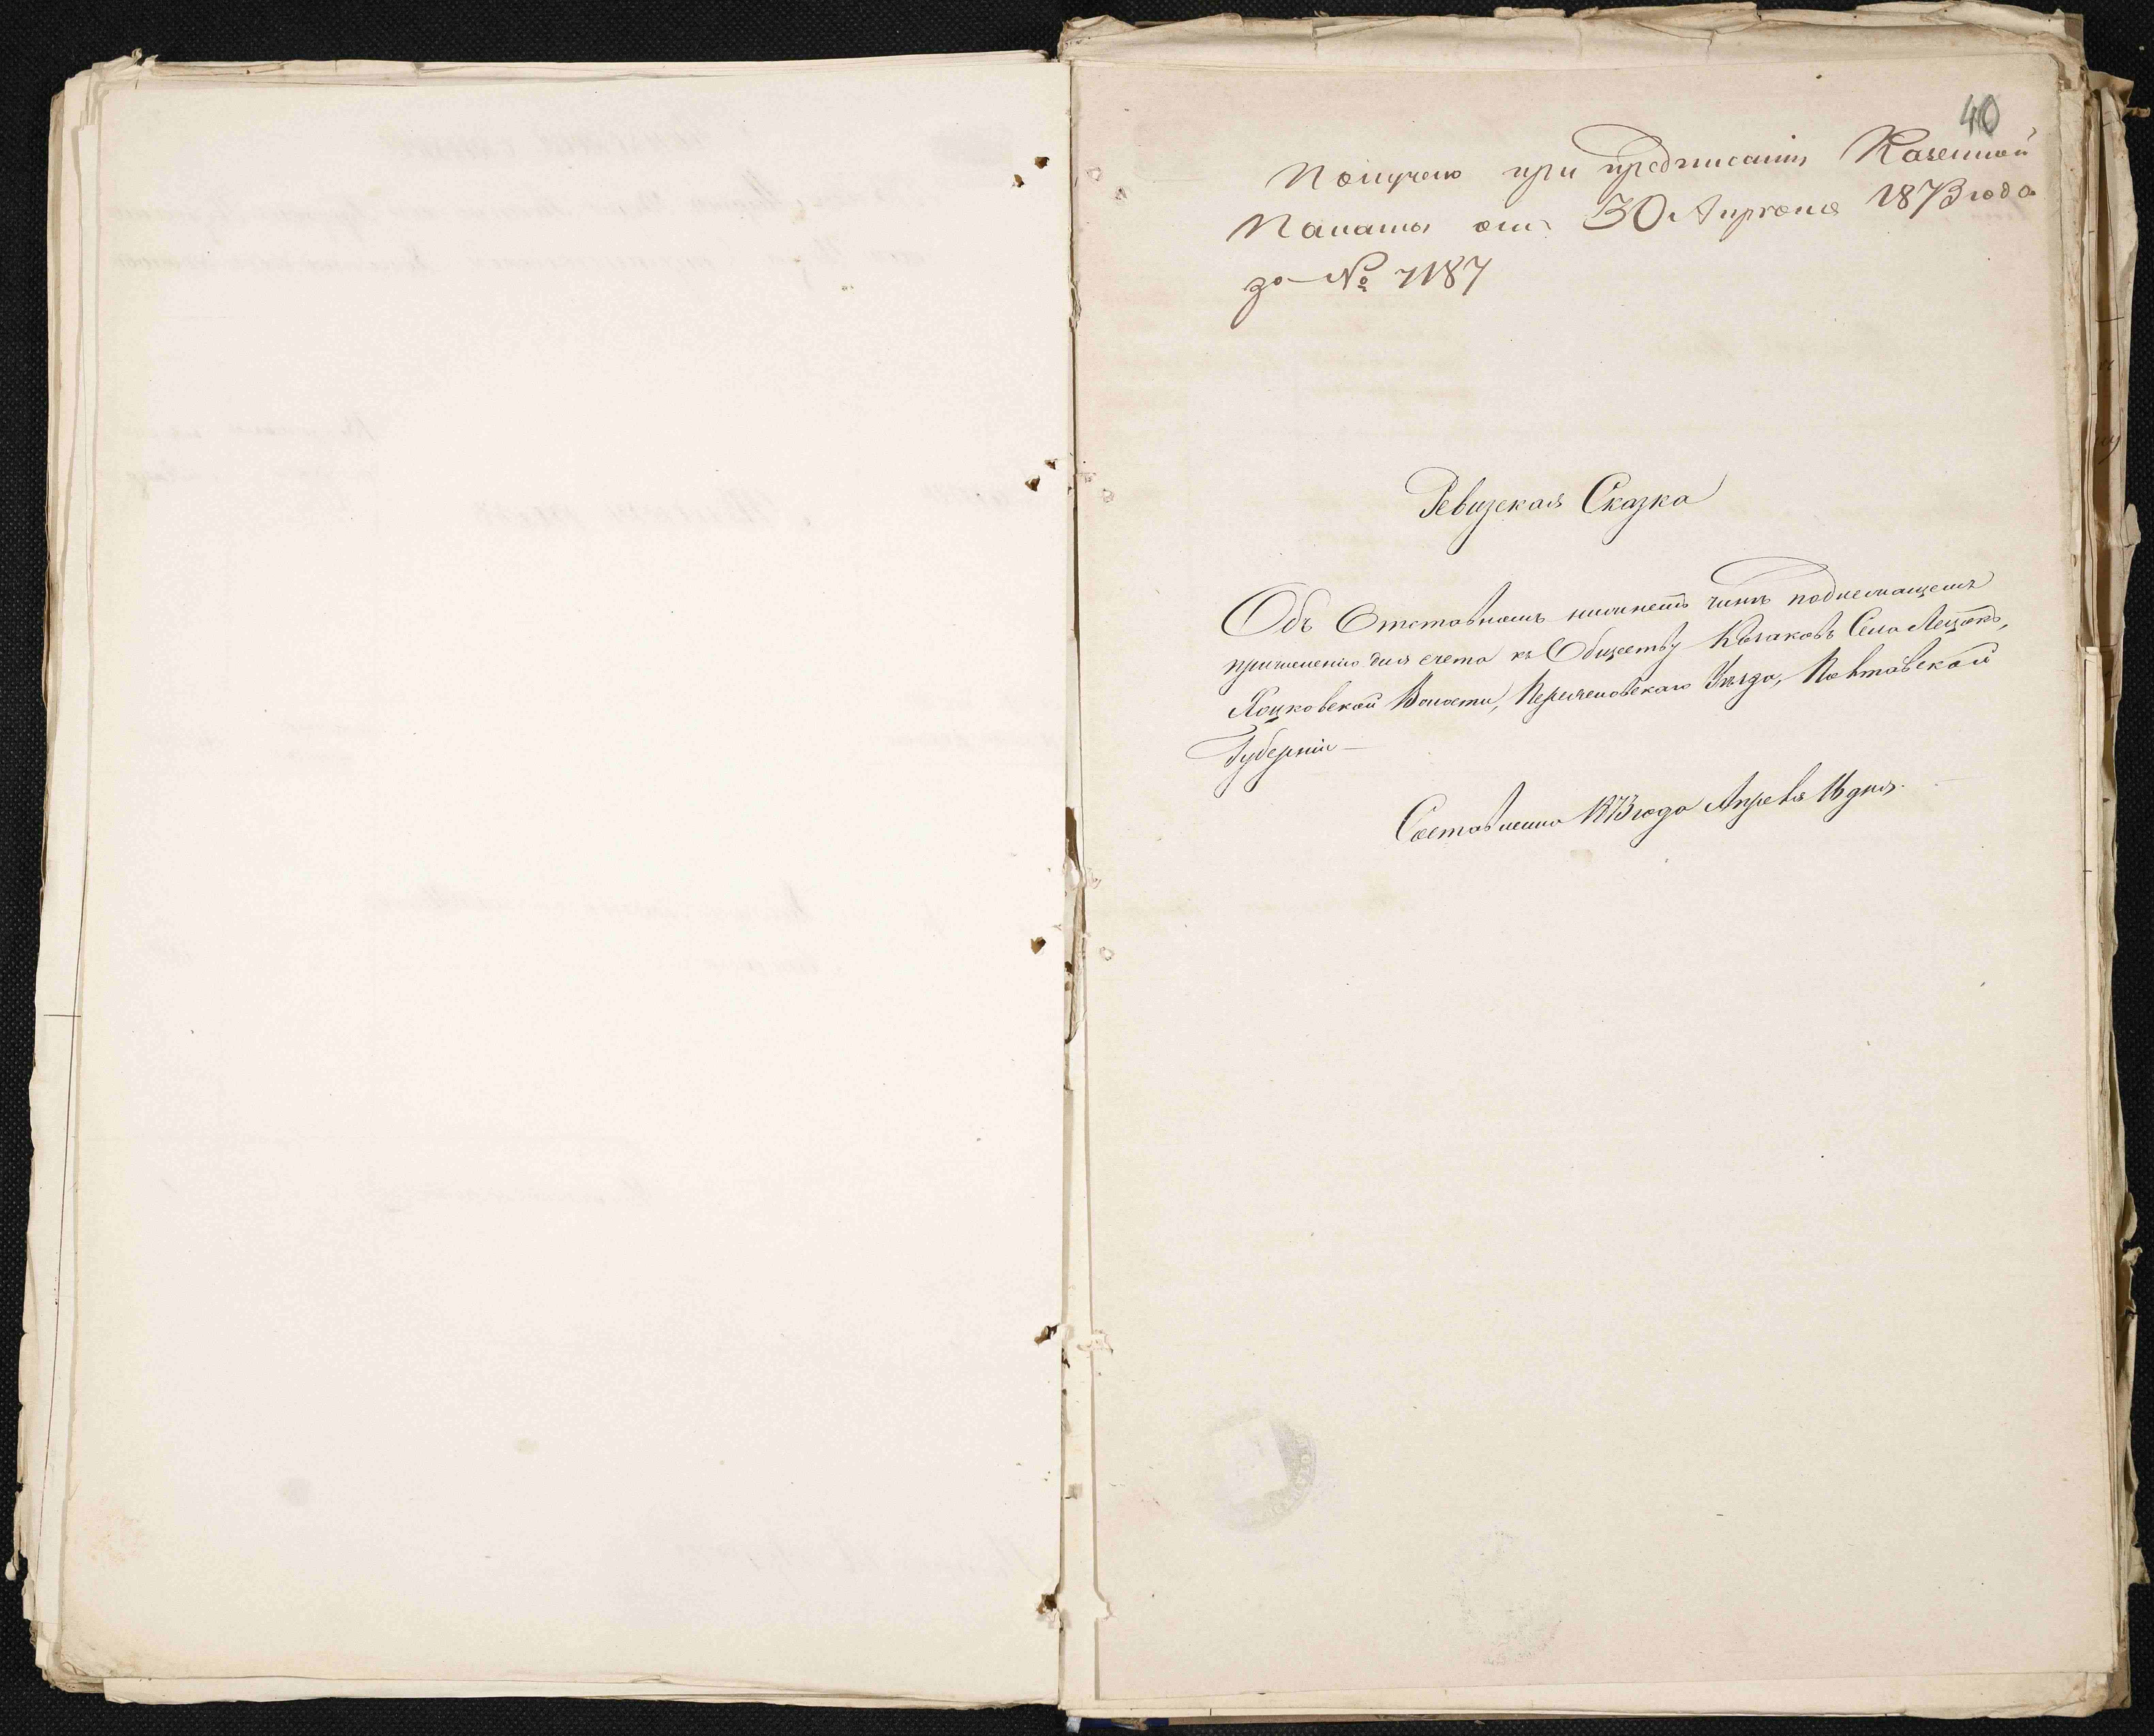 40
Получено при предписании Казенной
Палаты отъ 30 Апреля 1873 года
за № 7187
Ревизская Сказка
Объ Отставномъ нижнемъ чинѣ подлежащемъ
причислению для счета къ Обществу Козаковъ Села
Яцковской Волости, Переяславскаго Уезда, Полтавской
Губерніи
Составлена 1873 года Апреля 16 дня.